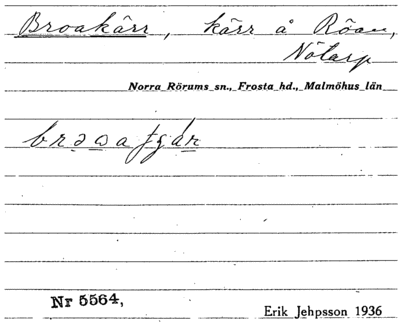 Broakärr, kärr å Röan,
Nötarp
Norra Rörums sn., Frosta hd., Malmöhus län
Nr 5564,
Erik Jehpsson 1936